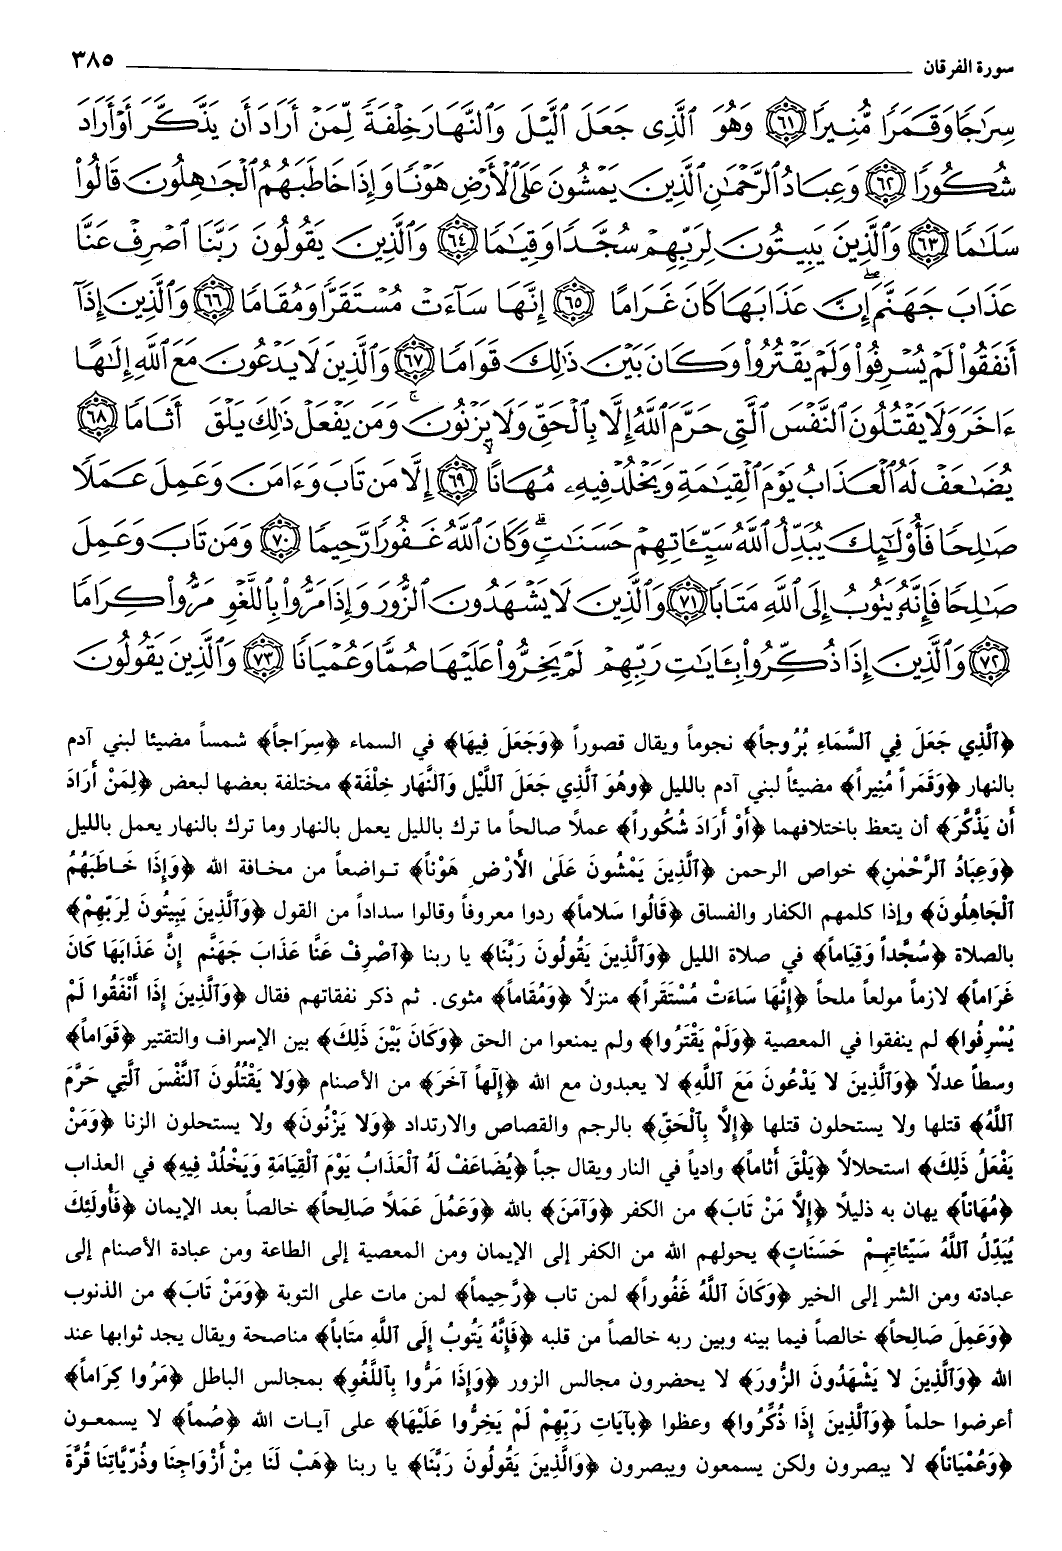 سورة الفرقان ٣٨٥
سِرَٰجًا وَقَمَرًا مُّنِيرًا ٦١ وَهُوَ ٱلَّذِى جَعَلَ ٱلَّيْلَ وَٱلنَّهَارَ خِلْفَةً لِّمَنْ أَرَادَ أَن يَذَّكَّرَ أَوْ أَرَادَ
شُكُورًا ٦٢ وَعِبَادُ ٱلرَّحْمَٰنِ ٱلَّذِينَ يَمْشُونَ عَلَى ٱلْأَرْضِ هَوْنًا وَإِذَا خَاطَبَهُمُ ٱلْجَٰهِلُونَ قَالُوا۟
سَلَٰمًا ٦٣ وَٱلَّذِينَ يَبِيتُونَ لِرَبِّهِمْ سُجَّدًا وَقِيَٰمًا ٦٤ وَٱلَّذِينَ يَقُولُونَ رَبَّنَا ٱصْرِفْ عَنَّا
عَذَابَ جَهَنَّمَ ۖ إِنَّ عَذَابَهَا كَانَ غَرَامًا ٦٥ إِنَّهَا سَآءَتْ مُسْتَقَرًّا وَمُقَامًا ٦٦ وَٱلَّذِينَ إِذَآ
أَنفَقُوا۟ لَمْ يُسْرِفُوا۟ وَلَمْ يَقْتُرُوا۟ وَكَانَ بَيْنَ ذَٰلِكَ قَوَامًا ٦٧ وَٱلَّذِينَ لَا يَدْعُونَ مَعَ ٱللَّهِ إِلَٰهًا
ءَاخَرَ وَلَا يَقْتُلُونَ ٱلنَّفْسَ ٱلَّتِى حَرَّمَ ٱللَّهُ إِلَّا بِٱلْحَقِّ وَلَا يَزْنُونَ ۚ وَمَن يَفْعَلْ ذَٰلِكَ يَلْقَ أَثَامًا ٦٨
يُضَٰعَفْ لَهُ ٱلْعَذَابُ يَوْمَ ٱلْقِيَٰمَةِ وَيَخْلُدْ فِيهِۦ مُهَانًا ٦٩ إِلَّا مَن تَابَ وَءَامَنَ وَعَمِلَ عَمَلًا
صَٰلِحًا فَأُو۟لَٰٓئِكَ يُبَدِّلُ ٱللَّهُ سَيِّـَٔاتِهِمْ حَسَنَٰتٍ ۗ وَكَانَ ٱللَّهُ غَفُورًا رَّحِيمًا ٧٠ وَمَن تَابَ وَعَمِلَ
صَٰلِحًا فَإِنَّهُۥ يَتُوبُ إِلَى ٱللَّهِ مَتَابًا ٧١ وَٱلَّذِينَ لَا يَشْهَدُونَ ٱلزُّورَ وَإِذَا مَرُّوا۟ بِٱللَّغْوِ مَرُّوا۟ كِرَامًا
٧٢ وَٱلَّذِينَ إِذَا ذُكِّرُوا۟ بِـَٔايَٰتِ رَبِّهِمْ لَمْ يَخِرُّوا۟ عَلَيْهَا صُمًّا وَعُمْيَانًا ٧٣ وَٱلَّذِينَ يَقُولُونَ
﴿ٱلَّذِي جَعَلَ فِي ٱلسَّمَاءِ بُرُوجاً﴾ نجوماً ويقال قصوراً ﴿وَجَعَلَ فِيهَا﴾ في السماء ﴿سِرَاجاً﴾ شمساً مضيئا لبني آدم
بالنهار ﴿وَقَمَراً مُنِيراً﴾ مضيئاً لبني آدم بالليل ﴿وهُوَ ٱلَّذِي جَعَلَ ٱللَّيْلَ وَٱلنَّهَار خِلْفَة﴾ مختلفة بعضها لبعض ﴿لِمَنْ أَرَادَ
أَن يَذَّكَّرَ﴾ أن يتعظ باختلافهما ﴿أَوْ أَرَادَ شُكُوراً﴾ عملاً صالحاً ما ترك بالليل يعمل بالنهار وما ترك بالنهار يعمل بالليل
﴿وَعِبَادُ ٱلرَّحْمٰنِ﴾ خواص الرحمن ﴿ٱلَّذِينَ يَمْشُونَ عَلَىٰ ٱلأَرْضِ هَوْناً﴾ تواضعاً من مخافة الله ﴿وَإِذَا خَاطَبَهُمُ
ٱلْجَاهِلُونَ﴾ وإذا كلمهم الكفار والفساق ﴿قَالُوا سَلاماً﴾ ردوا معروفاً وقالوا سداداً من القول ﴿وَٱلَّذِينَ يَبِيتُونَ لِرَبِّهِمْ﴾
بالصلاة ﴿سُجَّداً وَقِيَاماً﴾ في صلاة الليل ﴿وَٱلَّذِينَ يَقُولُونَ رَبَّنَا﴾ يا ربنا ﴿ٱصْرِفْ عَنَّا عَذَابَ جَهَنَّم إِنَّ عَذَابَهَا كَانَ
غَرَاماً﴾ لازماً مولعاً ملحاً ﴿إِنَّهَا سَاءَتْ مُسْتَقَراً﴾ منزلاً ﴿وَمُقَاماً﴾ مثوى. ثم ذكر نفقاتهم فقال ﴿وَٱلَّذِينَ إِذَا أَنْفَقُوا لَمْ
يُسْرِفُوا﴾ لم ينفقوا في المعصية ﴿وَلَمْ يَقْتَرُوا﴾ ولم يمنعوا من الحق ﴿وَكَانَ بَيْنَ ذَلِكَ﴾ بين الإسراف والتقتير ﴿قَوَاماً﴾
وسطاً عدلاً ﴿وَٱلَّذِينَ لا يَدْعُونَ مَعَ ٱللَّهِ﴾ لا يعبدون مع الله ﴿إِلٰهاً آخَرَ﴾ من الأصنام ﴿وَلا يَقْتُلُونَ ٱلنَّفْسَ ٱلَّتِي حَرَّمَ
ٱللَّهُ﴾ قتلها ولا يستحلون قتلها ﴿إِلَّا بِٱلْحَقِّ﴾ بالرجم والقصاص والارتداد ﴿وَلا يَزْنُونَ﴾ ولا يستحلون الزنا ﴿وَمَنْ
يَفْعَلُ ذَلِكَ﴾ استحلالاً ﴿يَلْقَ أَثاماً﴾ وادياً في النار ويقال جباً ﴿يُضَاعَفْ لَهُ ٱلْعَذَابُ يَوْمَ ٱلْقِيَامَةِ وَيَخْلُدْ فِيهِ﴾ في العذاب
﴿مُهَاناً﴾ يهان به ذليلاً ﴿إِلا مَنْ تَابَ﴾ من الكفر ﴿وَآمَنَ﴾ بالله ﴿وَعَمُلَ عَمَلاً صَالِحاً﴾ خالصاً بعد الإيمان ﴿فَأُولَئِكَ
يُبَدِّلُ ٱللَّهُ سَيِّئاتِهِمْ حَسَنَاتٍ﴾ يحولهم الله من الكفر إلى الإيمان ومن المعصية إلى الطاعة ومن عبادة الأصنام إلى
عبادته ومن الشر إلى الخير ﴿وَكَانَ ٱللَّهُ غَفُوراً﴾ لمن تاب ﴿رَّحِيماً﴾ لمن مات على التوبة ﴿وَمَنْ تَابَ﴾ من الذنوب
﴿وَعَمِلَ صَالِحاً﴾ خالصاً فيما بينه وبين ربه خالصاً من قلبه ﴿فَإِنَّهُ يَتُوبُ إِلَى ٱللَّهِ مَتَاباً﴾ مناصحة ويقال يجد ثوابها عند
الله ﴿وَٱلَّذِينَ لا يَشْهَدُونَ ٱلزُّورَ﴾ لا يحضرون مجالس الزور ﴿وَإِذَا مَرُّوا بِٱللَّغْوِ﴾ بمجالس الباطل ﴿مَرُوا كِرَاماً﴾
أعرضوا حلماً ﴿وَٱلَّذِينَ إِذَا ذُكِّرُوا﴾ وعظوا ﴿بِآيَاتِ رَبِّهِمْ لَمْ يَخِرُّوا عَلَيْهَا﴾ على آيات الله ﴿صُماً﴾ لا يسمعون
﴿وَعُمْيَاناً﴾ لا يبصرون ولكن يسمعون ويبصرون ﴿وَٱلَّذِينَ يَقُولُونَ رَبَّنَا﴾ يا ربنا ﴿هَبْ لَنَا مِنْ أَزْوَاجِنَا وذُرِّيَّاتِنَا قُرَّةَ